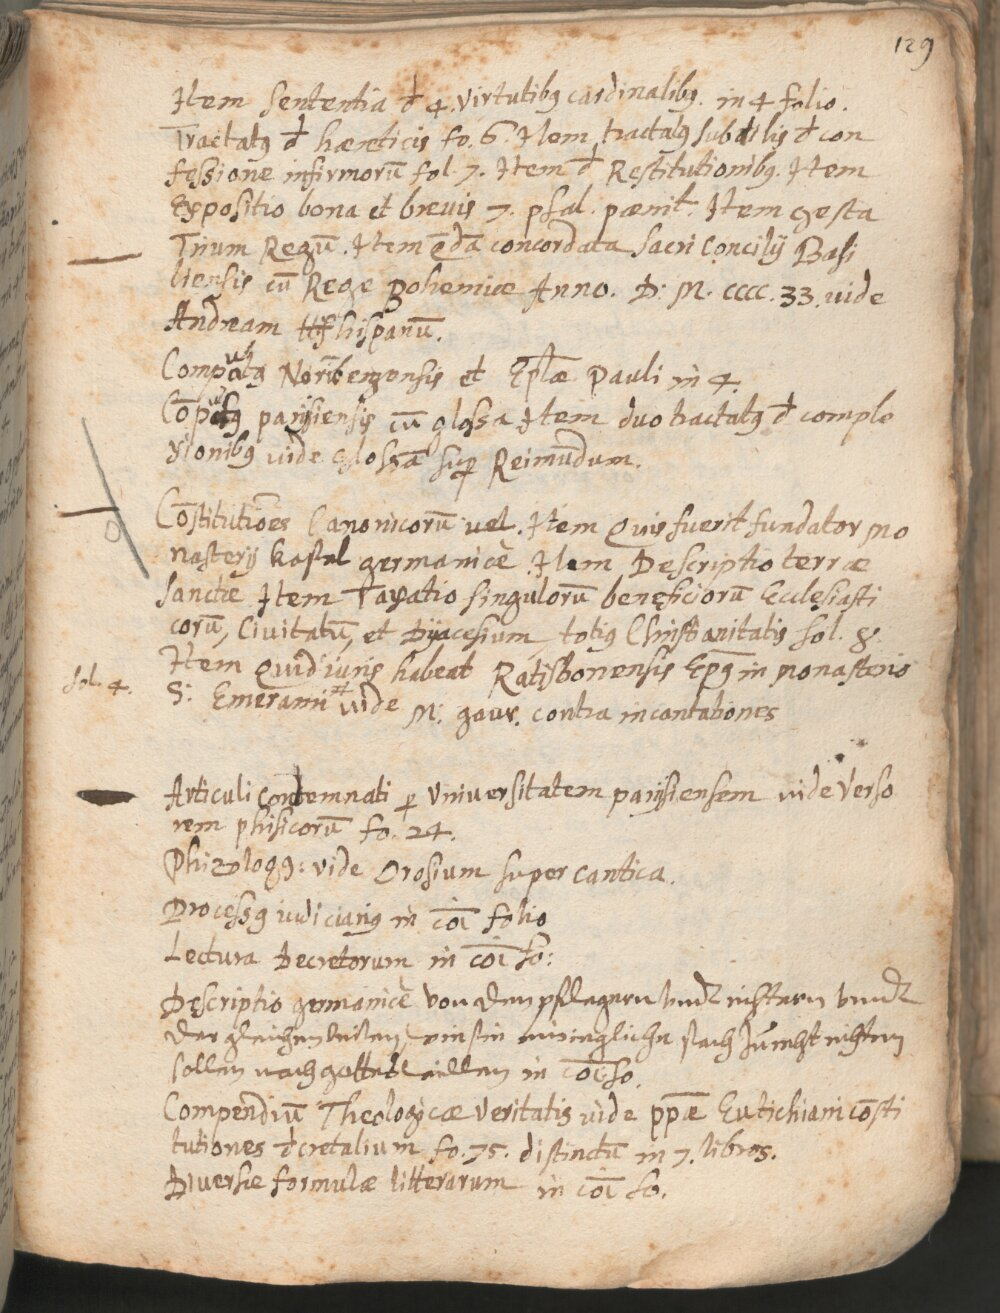 129
Item Sententia d̄ 4. virtutibꝫ cardinalibꝫ. in 4 folio.
Tractatꝫ d̄ hæreticis fo. 6. Item tractatꝫ subtilis d̄ con
fessione infirmorū fol. 7. Item d̄ Restitutionibꝫ. Item
Expositio bona et brevis 7. psal. pænit. Item gesta
Trium Regū. Item q̄dā concordata Sacri Concilij Basi
liensis cū Rege Bohemiæ Anno. D. M. CCCC. 33. uide
Andream hispanū.
Computꝫ Noribergensis et Eplæ Pauli in 4.
Cōputꝫ parisiensis cū glossa Item duo tractatꝫ d̄ comple
xionibꝫ uide glossā suꝑ Reimundum.
Cōstitutiōes Canonicorū uel. Item Quis fuerit fundator mo
nasterij Kastel germanicè. Item Descriptio terræ
sanctæ Item Taxatio singulorū beneficiorū Ecclesiasti
corū, Civitatū, et Dyacesium totiꝫ Christianitatis fol. 8.
Item Quid iuris habeat Ratisbonensis Epꝫ in monasterio
fol. 4.
S: Emerami uide M: gaur. contra incantationes
Articuli condemnati ꝑ Universitatem parisiensem uide Verso
rem phisicorū fo. 24.
Phizologꝫ: vide Orosium super cantica.
Processꝫ iudiciariꝫ in cōi folio
Lectura Decretorum in cōi fo:
Descriptio germanicè von den pflegern vndt richtern vndt
der gleichen leüten, wie sie ein iegliche sach Zu recht richten
sollen nach gottes willen in cōi fo.
Compendiū Theologicæ veritatis uide ppæ Eutichiani cōsti
tutiones d̄cretalium fo. 75. distinctū in 7. libros.
Diversæ formulæ litterarum in cōi fo.